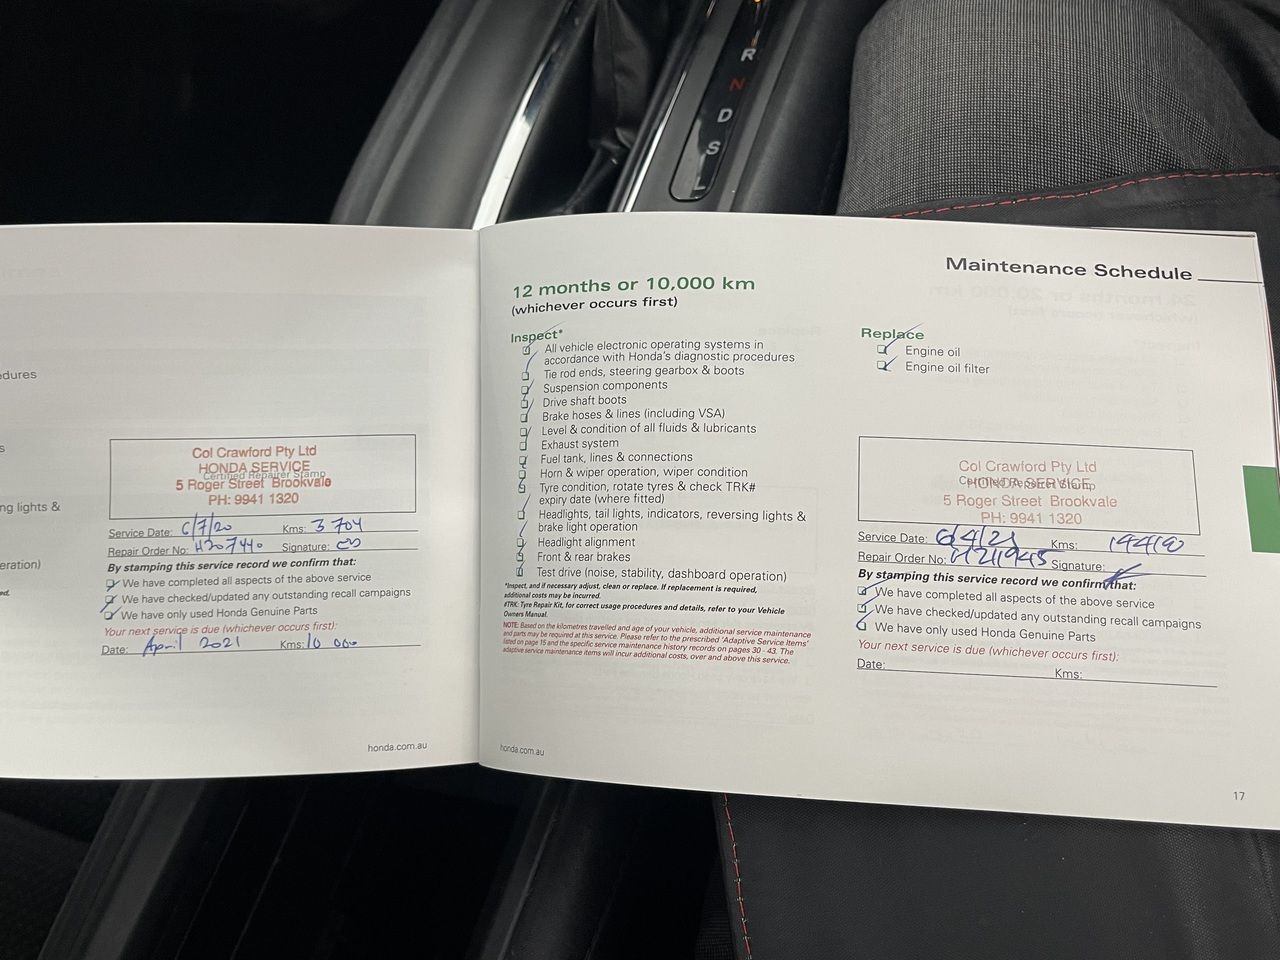 R
N
D
S
L
edures
s
ng lights &
eration)
ed.
Col Crawford Pty Ltd
HONDA SERVICE
Certified Repairer Stamp
5 Roger Street Brookvale
PH: 9941 1320
Service Date: 6/7/20 Kms: 3 704
Repair Order No: H207440 Signature:
By stamping this service record we confirm that:
We have completed all aspects of the above service
We have checked/updated any outstanding recall campaigns
We have only used Honda Genuine Parts
Your next service is due (whichever occurs first):
Date: April 2021 Kms: 10 000
honda.com.au
Maintenance Schedule
12 months or 10,000 km
(whichever occurs first)
Inspect*
All vehicle electronic operating systems in
accordance with Honda's diagnostic procedures
Tie rod ends, steering gearbox & boots
Suspension components
Drive shaft boots
Brake hoses & lines (including VSA)
Level & condition of all fluids & lubricants
Exhaust system
Fuel tank, lines & connections
Horn & wiper operation, wiper condition
Tyre condition, rotate tyres & check TRK#
expiry date (where fitted)
Headlights, tail lights, indicators, reversing lights &
brake light operation
Headlight alignment
Front & rear brakes
Test drive (noise, stability, dashboard operation)
*Inspect, and if necessary adjust, clean or replace. If replacement is required,
additional costs may be incurred.
#TRK: Tyre Repair Kit, for correct usage procedures and details, refer to your Vehicle
Owners Manual.
NOTE: Based on the kilometres travelled and age of your vehicle, additional service maintenance
and parts may be required at this service. Please refer to the prescribed 'Adaptive Service Items'
listed on page 15 and the specific service maintenance history records on pages 30 - 43. The
adaptive service maintenance items will incur additional costs, over and above this service.
honda.com.au
Replace
Engine oil
Engine oil filter
Col Crawford Pty Ltd
Certified Repairer Stamp
HONDA SERVICE
5 Roger Street Brookvale
PH: 9941 1320
Service Date: 6/4/21 Kms:
Repair Order No: H211945 Signature:
By stamping this service record we confirm that:
We have completed all aspects of the above service
We have checked/updated any outstanding recall campaigns
We have only used Honda Genuine Parts
Your next service is due (whichever occurs first):
Date: Kms:
17